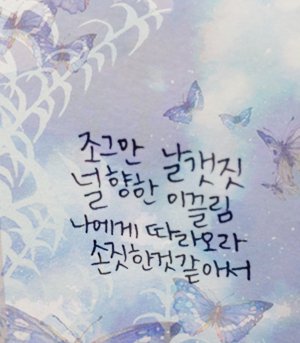 조그만 날갯짓
널 향한 이끌림
나에게 따라오라
손짓한것 같아서